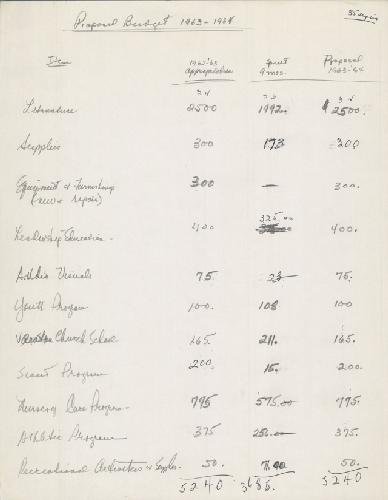 Proposed Budget 1963-1964
Item 1962-63 appropriation Spent 9 mos. Proposal 1963-64
Literature 2500 1992 $2500.
Supplies 300 173 300
Equipment & Furnishing 300 — 300.
(new & repair)
325.00
Leadership Education - 400 400.
Audio Visuals 75. 75.
Youth Program 100. 108 100
Vacation Church School 165. 211. 165.
Scout Program 200. 15. 200.
Nursery Care Program - 775 575.00 775.
Athletic Program 375 250.00 375.
Recreational Activities & Supplies 50. 7.40 50.
5240 3686. 5240